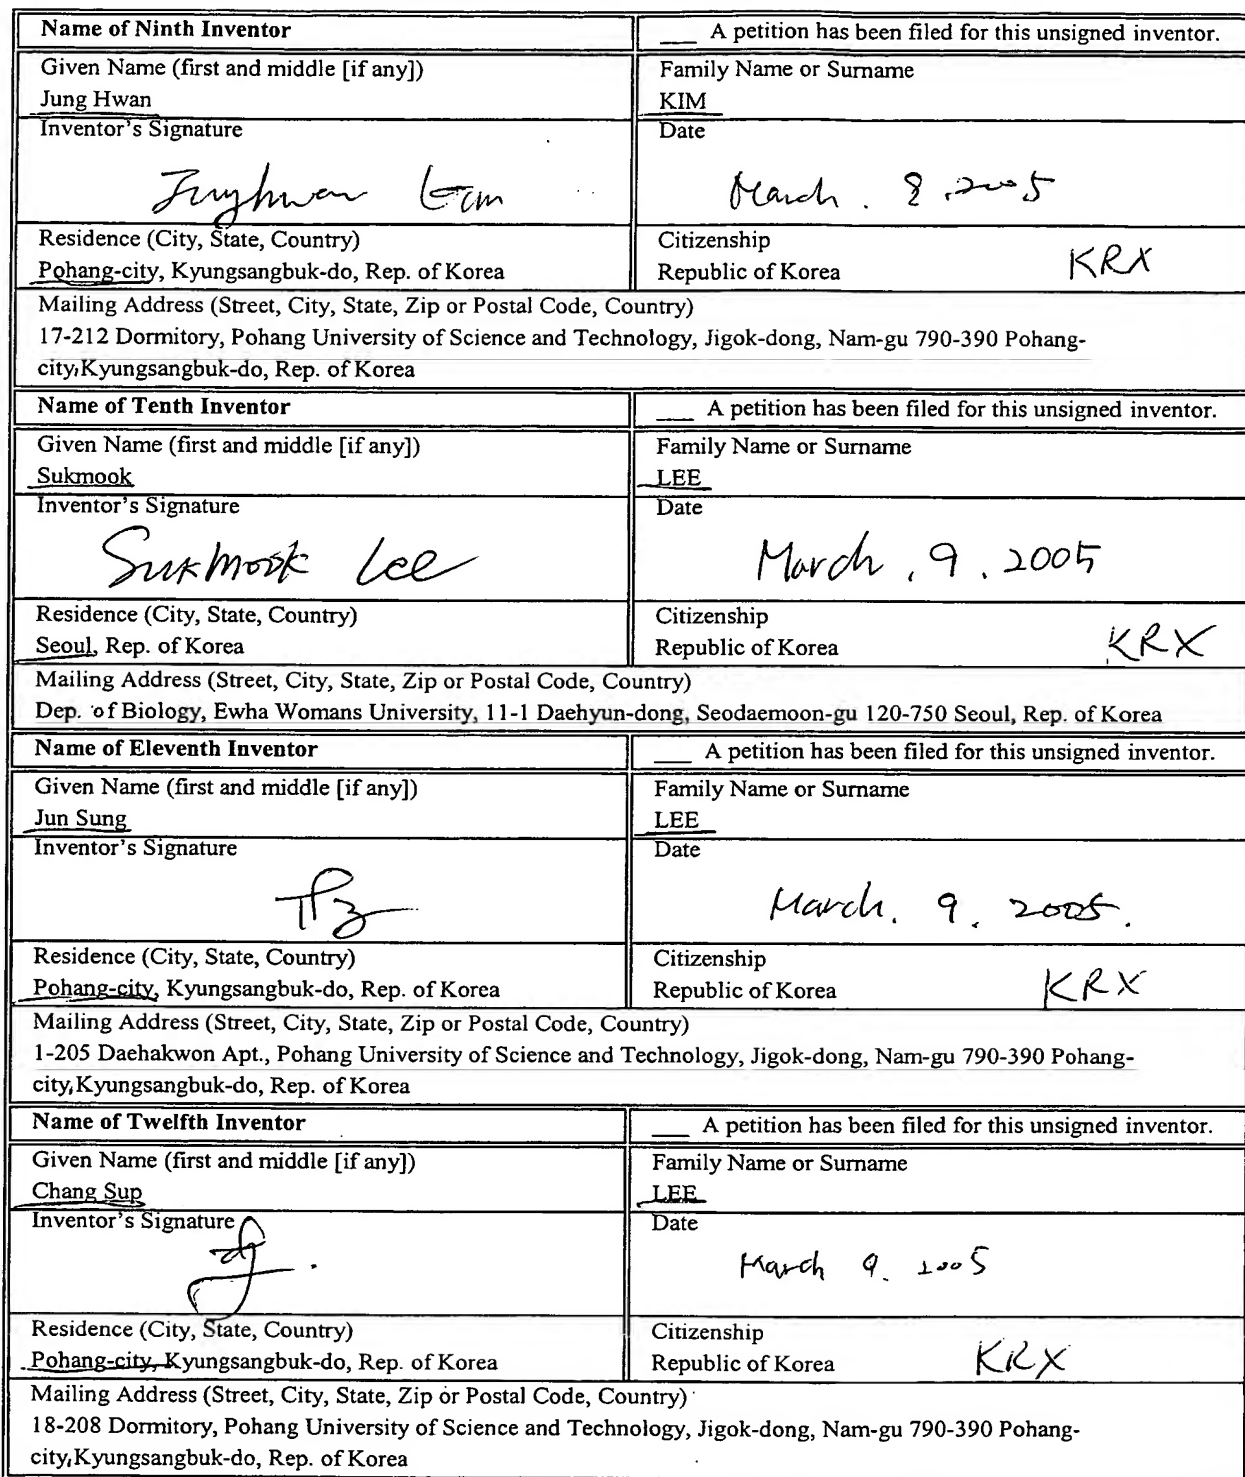 Name of Ninth Inventor ___ A petition has been filed for this unsigned inventor.
Given Name (first and middle [if any]) Family Name or Surname
Jung Hwan KIM
Inventor's Signature Date
Junghwan Kim March . 8 . 2005
Residence (City, State, Country) Citizenship
Pohang-city, Kyungsangbuk-do, Rep. of Korea Republic of Korea KRX
Mailing Address (Street, City, State, Zip or Postal Code, Country)
17-212 Dormitory, Pohang University of Science and Technology, Jigok-dong, Nam-gu 790-390 Pohang-
city, Kyungsangbuk-do, Rep. of Korea
Name of Tenth Inventor ___ A petition has been filed for this unsigned inventor.
Given Name (first and middle [if any]) Family Name or Surname
Sukmook LEE
Inventor's Signature Date
Sukmook Lee March . 9 . 2005
Residence (City, State, Country) Citizenship
Seoul, Rep. of Korea Republic of Korea KRX
Mailing Address (Street, City, State, Zip or Postal Code, Country)
Dep. of Biology, Ewha Womans University, 11-1 Daehyun-dong, Seodaemoon-gu 120-750 Seoul, Rep. of Korea
Name of Eleventh Inventor ___ A petition has been filed for this unsigned inventor.
Given Name (first and middle [if any]) Family Name or Surname
Jun Sung LEE
Inventor's Signature Date
March. 9. 2005.
Residence (City, State, Country) Citizenship
Pohang-city, Kyungsangbuk-do, Rep. of Korea Republic of Korea KRX
Mailing Address (Street, City, State, Zip or Postal Code, Country)
1-205 Daehakwon Apt., Pohang University of Science and Technology, Jigok-dong, Nam-gu 790-390 Pohang-
city, Kyungsangbuk-do, Rep. of Korea
Name of Twelfth Inventor ___ A petition has been filed for this unsigned inventor.
Given Name (first and middle [if any]) Family Name or Surname
Chang Sup LEE
Inventor's Signature Date
March 9. 2005
Residence (City, State, Country) Citizenship
Pohang-city, Kyungsangbuk-do, Rep. of Korea Republic of Korea KRX
Mailing Address (Street, City, State, Zip or Postal Code, Country)
18-208 Dormitory, Pohang University of Science and Technology, Jigok-dong, Nam-gu 790-390 Pohang-
city, Kyungsangbuk-do, Rep. of Korea